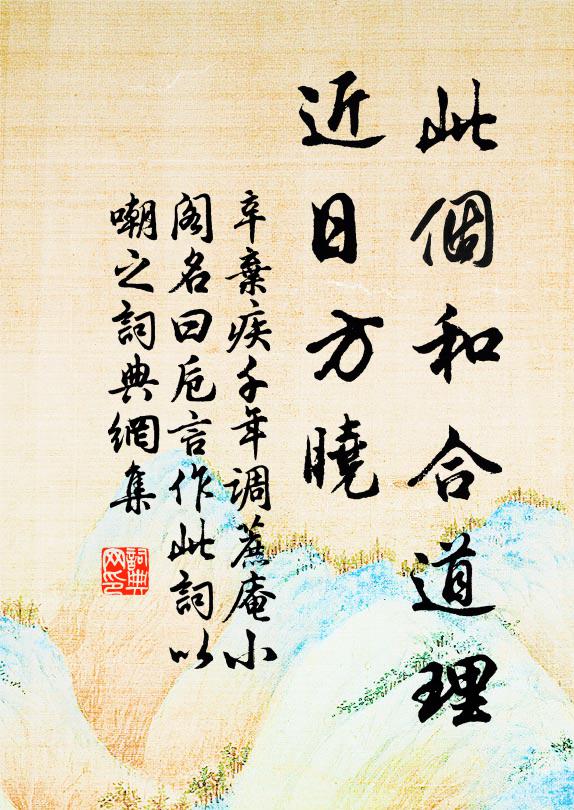 此個和合道理
近日方曉
辛棄疾千年調蔗庵小
閣名曰卮言作此詞以
嘲之詞典網集
詞典
网印